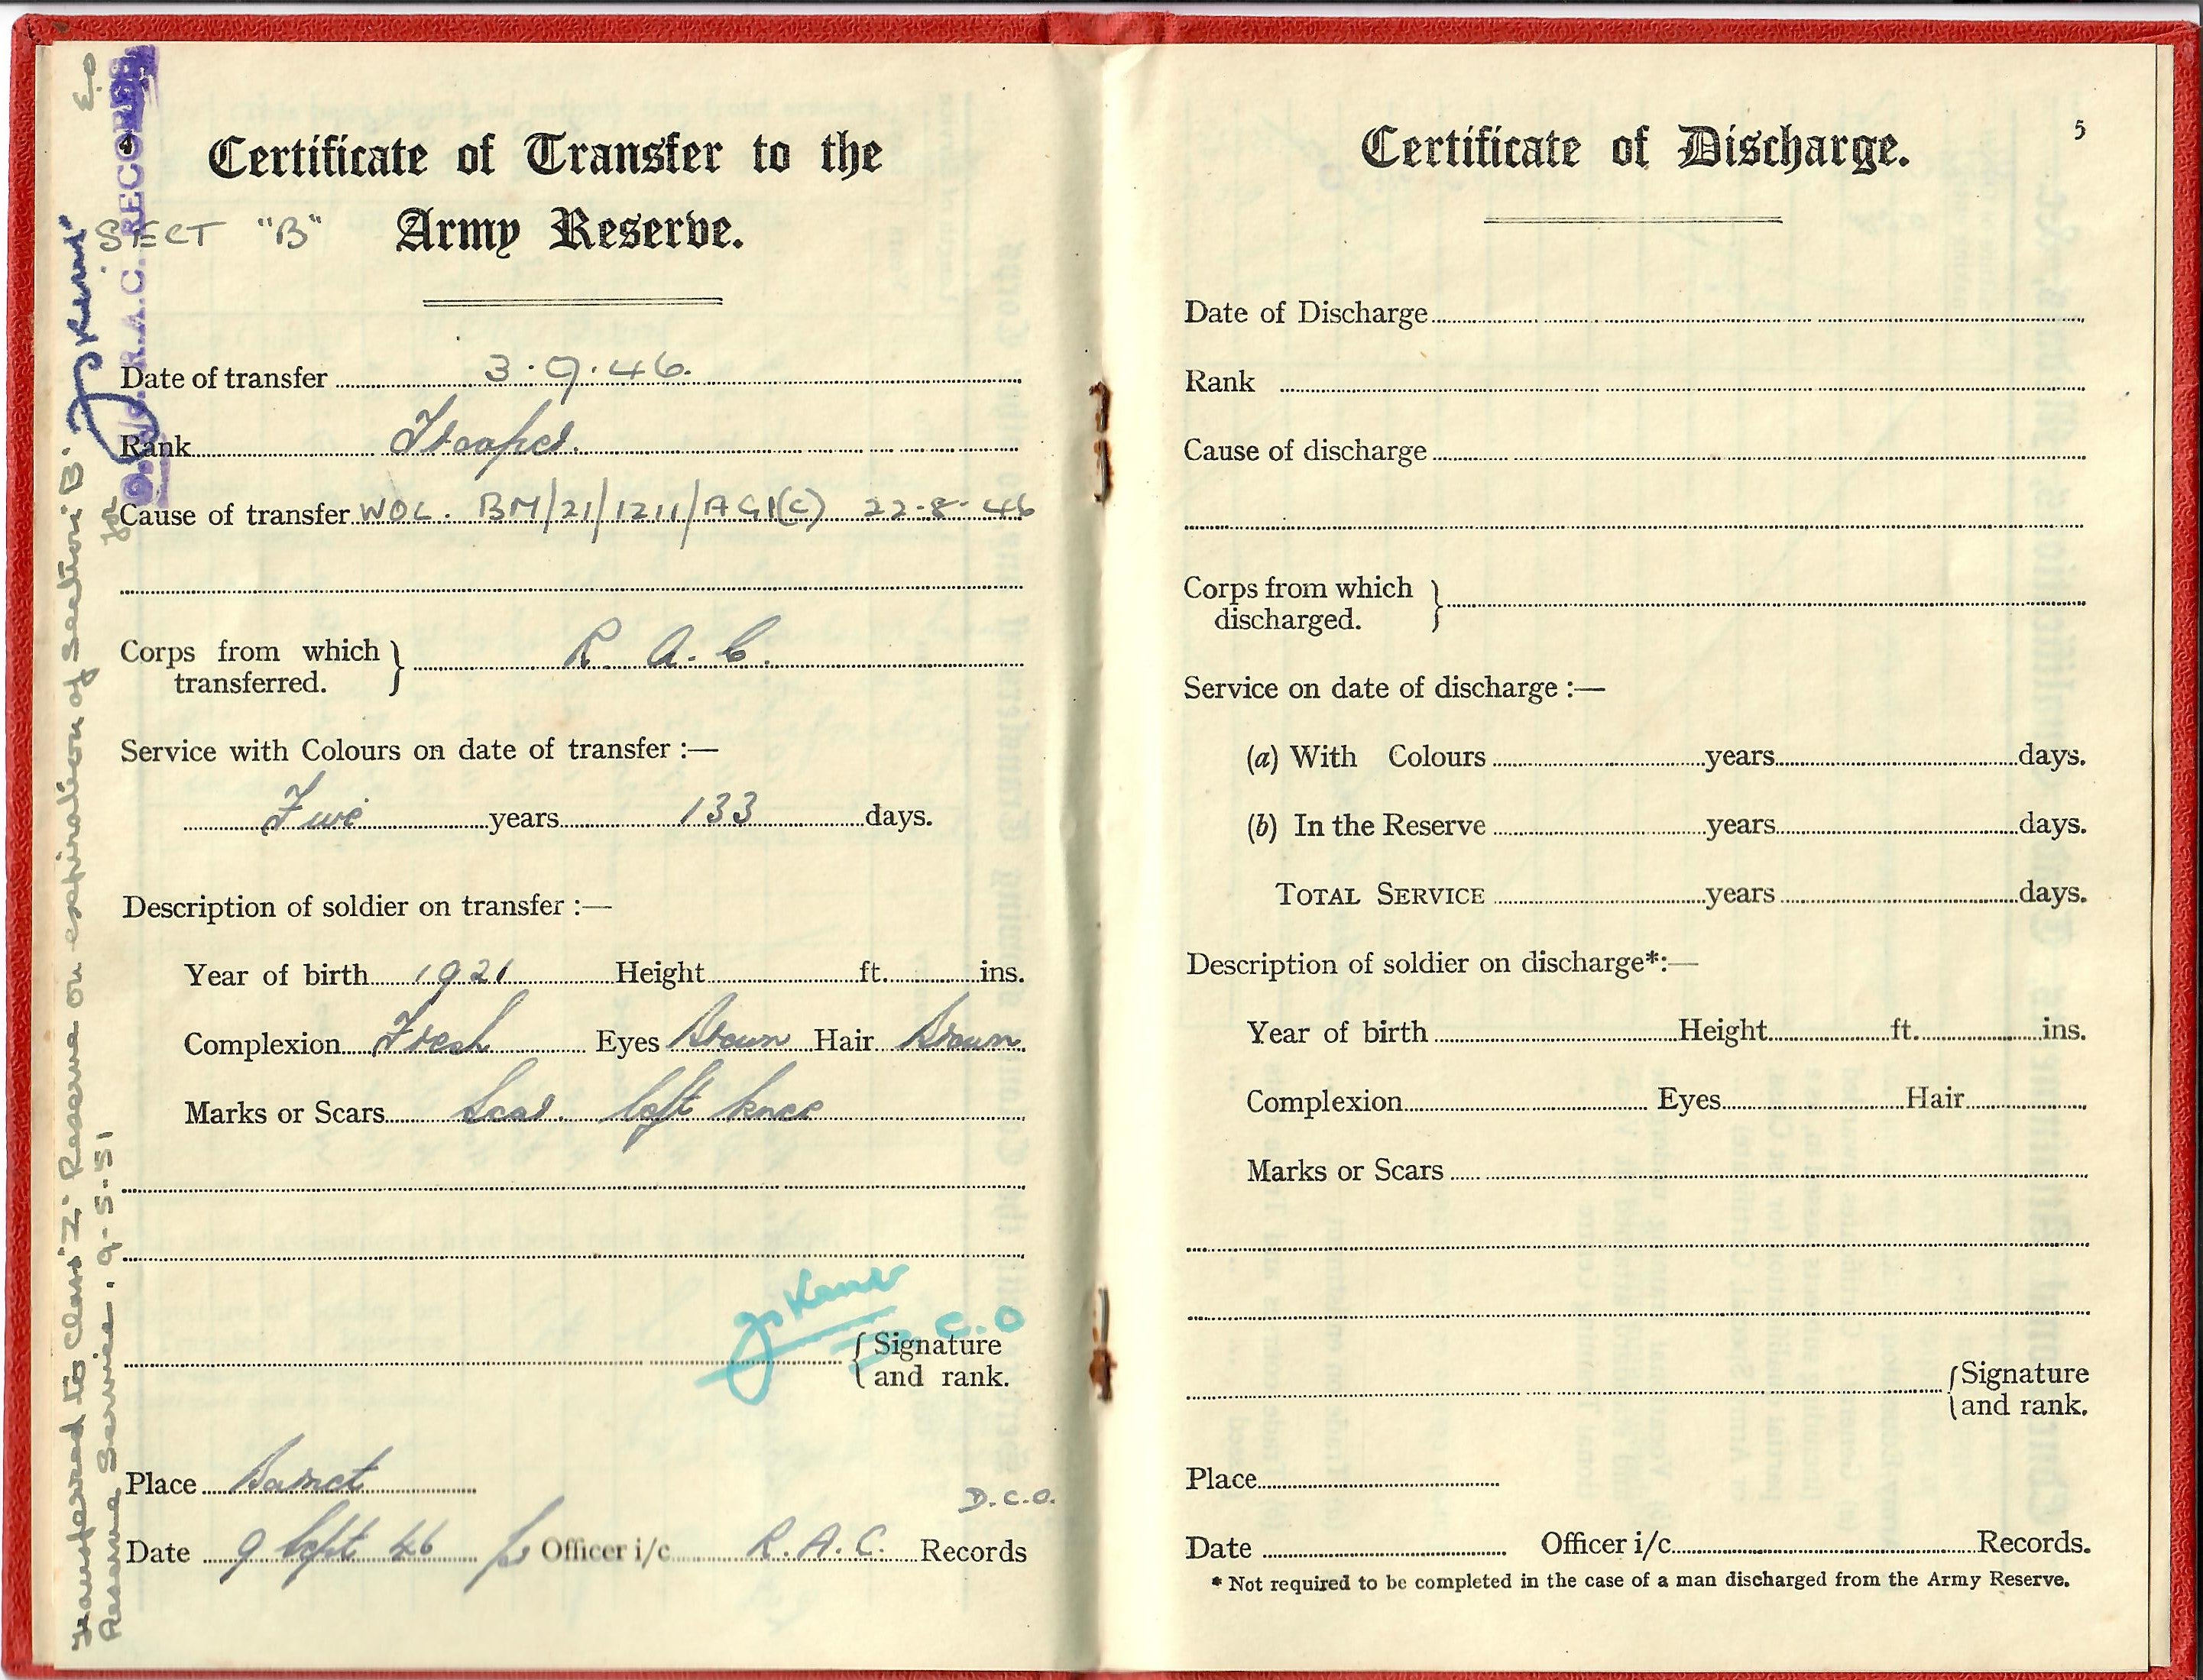 Certificate of Transfer to the
SECT "B" Army Reserve.
Date of transfer 3.9.46.
Rank Trooper.
Cause of transfer WOL. BM/21/1211/AG1(C) 22-8-46
Corps from which transferred. } R. A. C.
Service with Colours on date of transfer :—
Five years 133 days.
Description of soldier on transfer :—
Year of birth 1921 Height ft. ins.
Complexion Fresh Eyes Brown Hair Brown
Marks or Scars Scar. left knee
C.O
{ Signature and rank.
Place Barnet
D.C.O.
Date 9 Sept 46 for Officer i/c R.A.C. Records
Transferred to Class 'Z' Reserve on expiration of Section 'B'
Reserve Service. 9-5-51
for
R.A.C. RECORDS
5
Certificate of Discharge.
Date of Discharge
Rank
Cause of discharge
Corps from which discharged. }
Service on date of discharge :—
(a) With Colours years days.
(b) In the Reserve years days.
TOTAL SERVICE years days.
Description of soldier on discharge*:—
Year of birth Height ft. ins.
Complexion Eyes Hair
Marks or Scars
{ Signature and rank.
Place
Date Officer i/c Records.
* Not required to be completed in the case of a man discharged from the Army Reserve.